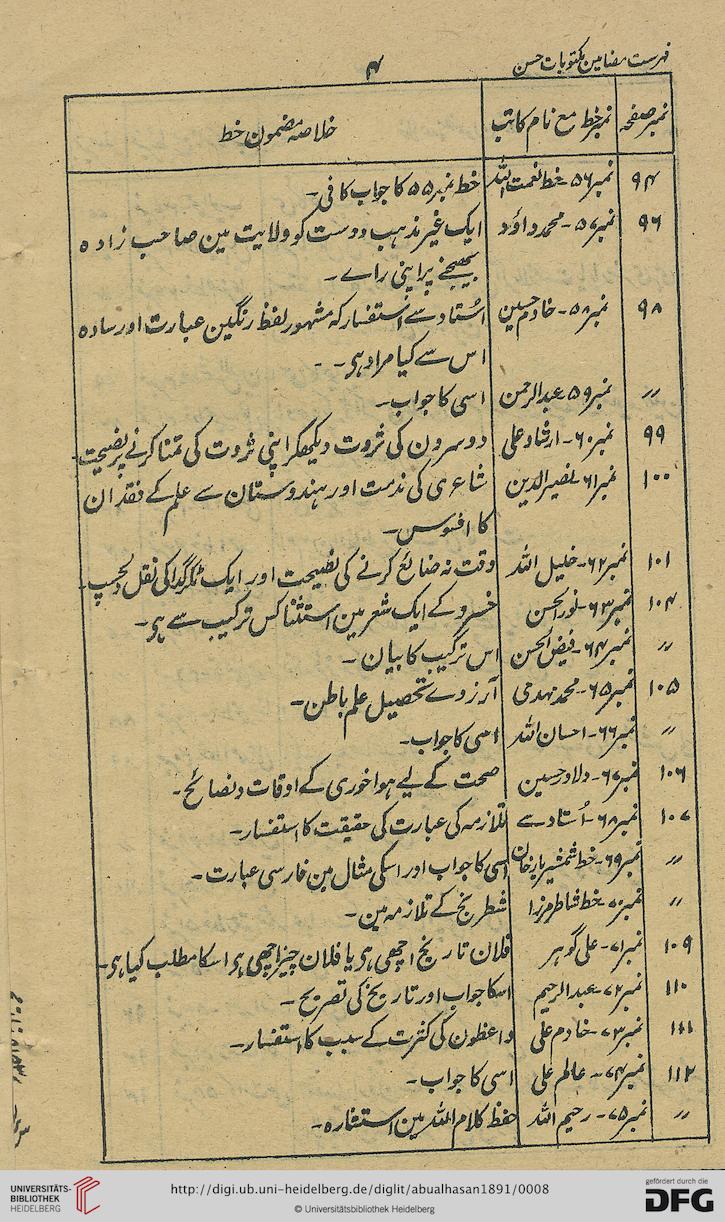 فہرست مضامین مکتوبات حسن
۴
نمبر صفحہ نمبر خط مع نام کاتب خلاصہ مضمون خط
۹۴ نمبر ۵۶- خط نعمت اللہ خط نمبر ۵۵ کا جواب کافی-
۹۶ نمبر ۵۷- محمد داؤد ایک غیر مذہب دوست کو ولایت مین صاحب زادہ
بھیجنے پر اپنی راے-
۹۸ نمبر ۵۸- خادم حسین استاد سے استفسار کہ مشہور لفظ رنگین عبارت اور سادہ
اس سے کیا مراد ہی-
〃 نمبر ۵۹ عبد الرحمن اسی کا جواب-
۹۹ نمبر ۶۰- ارشاد علی دوسرون کی ثروت دیکھکر اپنی ثروت کی تمنا کرنے پر نصیحت-
۱۰۰ نمبر ۶۱ نصیر الدین شاعری کی مذمت اور ہندوستان سے علم کے فقدان
کا افسوس-
۱۰۱ نمبر ۶۲- خلیل اللہ وقت نہ ضائع کرنے کی نصیحت اور ایک گدا کی نقل دلچسپ-
۱۰۴ نمبر ۶۳- نور الحسن خسرو کے ایک شعر مین استثنا کس ترکیب سے ہی-
〃 نمبر ۶۴- فیض الحسن اس ترکیب کا بیان-
۱۰۵ نمبر ۶۵- محمد مہدی آرزوے تحصیل علم باطن-
〃 نمبر ۶۶- احسان اللہ اسی کا جواب-
۱۰۶ نمبر ۶۷- دلاور حسین صحت کے لیے ہوا خوری کے اوقات و نصائح-
۱۰۷ نمبر ۶۸- اُستاد سے تلازمہ کی عبارت کی حقیقت کا استفسار-
〃 نمبر ۶۹- خط شمشیر یار خان اسی کا جواب اور اسکی مثال مین فارسی عبارت-
〃 نمبر ۷۰- خط شاطر مرزا شطرنج کے تلازمہ مین-
۱۰۹ نمبر ۷۱- علی گوہر فلان تاریخ اچھی ہی یا فلان چیز اچھی ہی اسکا مطلب کیا ہی-
۱۱۰ نمبر ۷۲- عبد الرحیم اسکا جواب اور تاریخ کی تصریح-
۱۱۱ نمبر ۷۳- خادم علی واعظون کی کثرت کے سبب کا استفسار-
۱۱۲ نمبر ۷۴- عالم علی اسی کا جواب-
〃 نمبر ۷۵- رحیم اللہ حفظ کلام اللہ مین استشارہ-
UNIVERSITÄTS-
BIBLIOTHEK
HEIDELBERG
http://digi.ub.uni-heidelberg.de/diglit/abualhasan1891/0008
© Universitätsbibliothek Heidelberg
gefördert durch die
DFG